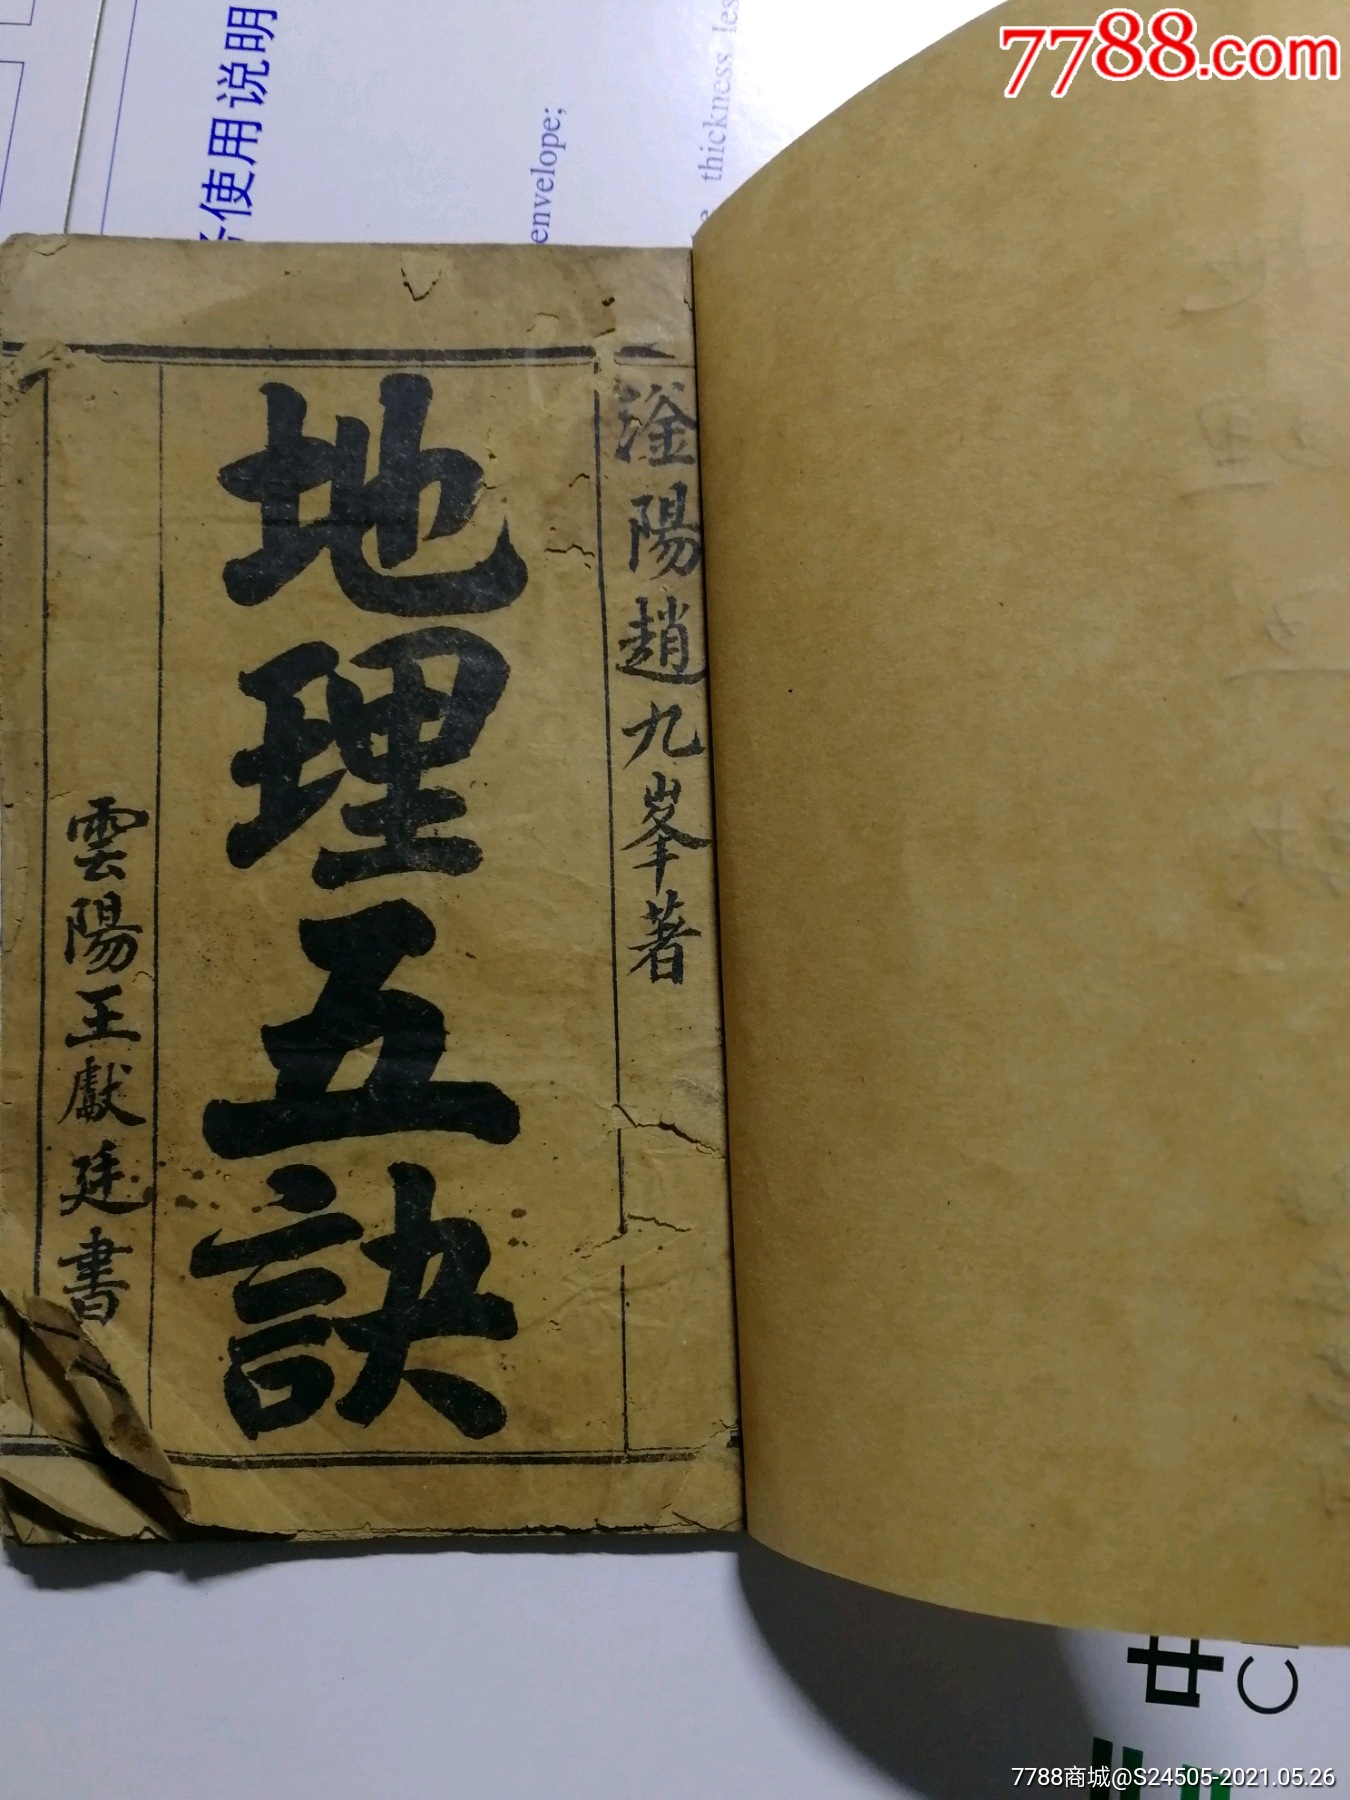 7788.com
使用说明
envelope;
thickness les
滏陽趙九峯著
地理五訣
雲陽王獻廷書
中
C
7788商城@S24505-2021.05.26